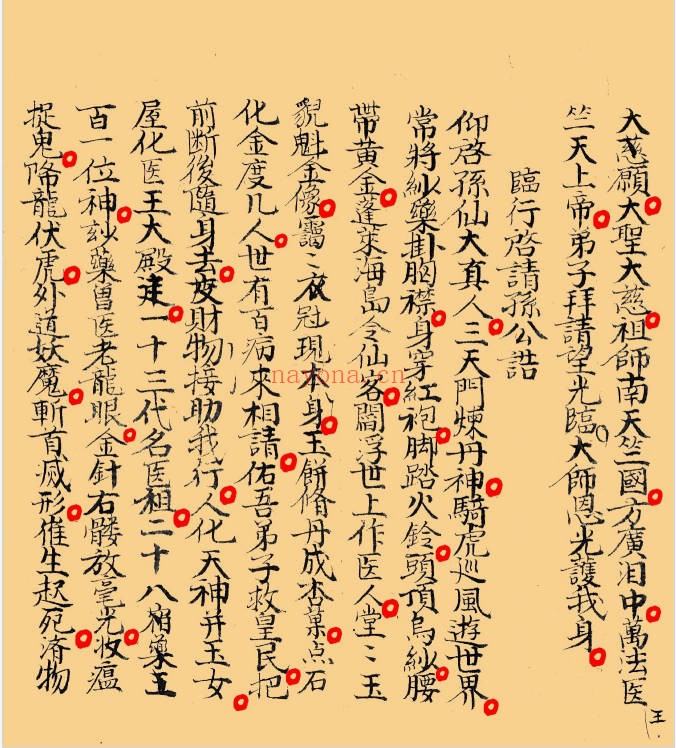 大慈願大聖大慈祖師南天竺國方廣泪中萬法医王
竺天上帝弟子拜請望光臨大師恩光護我身
臨行啓請孫公誥
仰啓孫仙大真人三天門煉丹神騎虎巡風遊世界
常將紗藥掛胸襟身穿紅袍脚踏火鈴頭頂烏紗腰
帶黃金蓬萊海島令仙客閻浮世上作医人堂〻玉
貌魁金像靄〻衣冠現本身玉餅脩丹成杏菓点石
化金度几人世有百病來相請佑吾弟子救皇民把
前断後隨身去財物接助我行人化天神并玉女
屋化医王大殿建一十三代名医祖二十八宿藥王
百一位神玅藥曽医老龍眼金針右髅放毫光收瘟
捉鬼降龍伏虎外道妖魔斬首滅形催生起死済物
nayona.cn